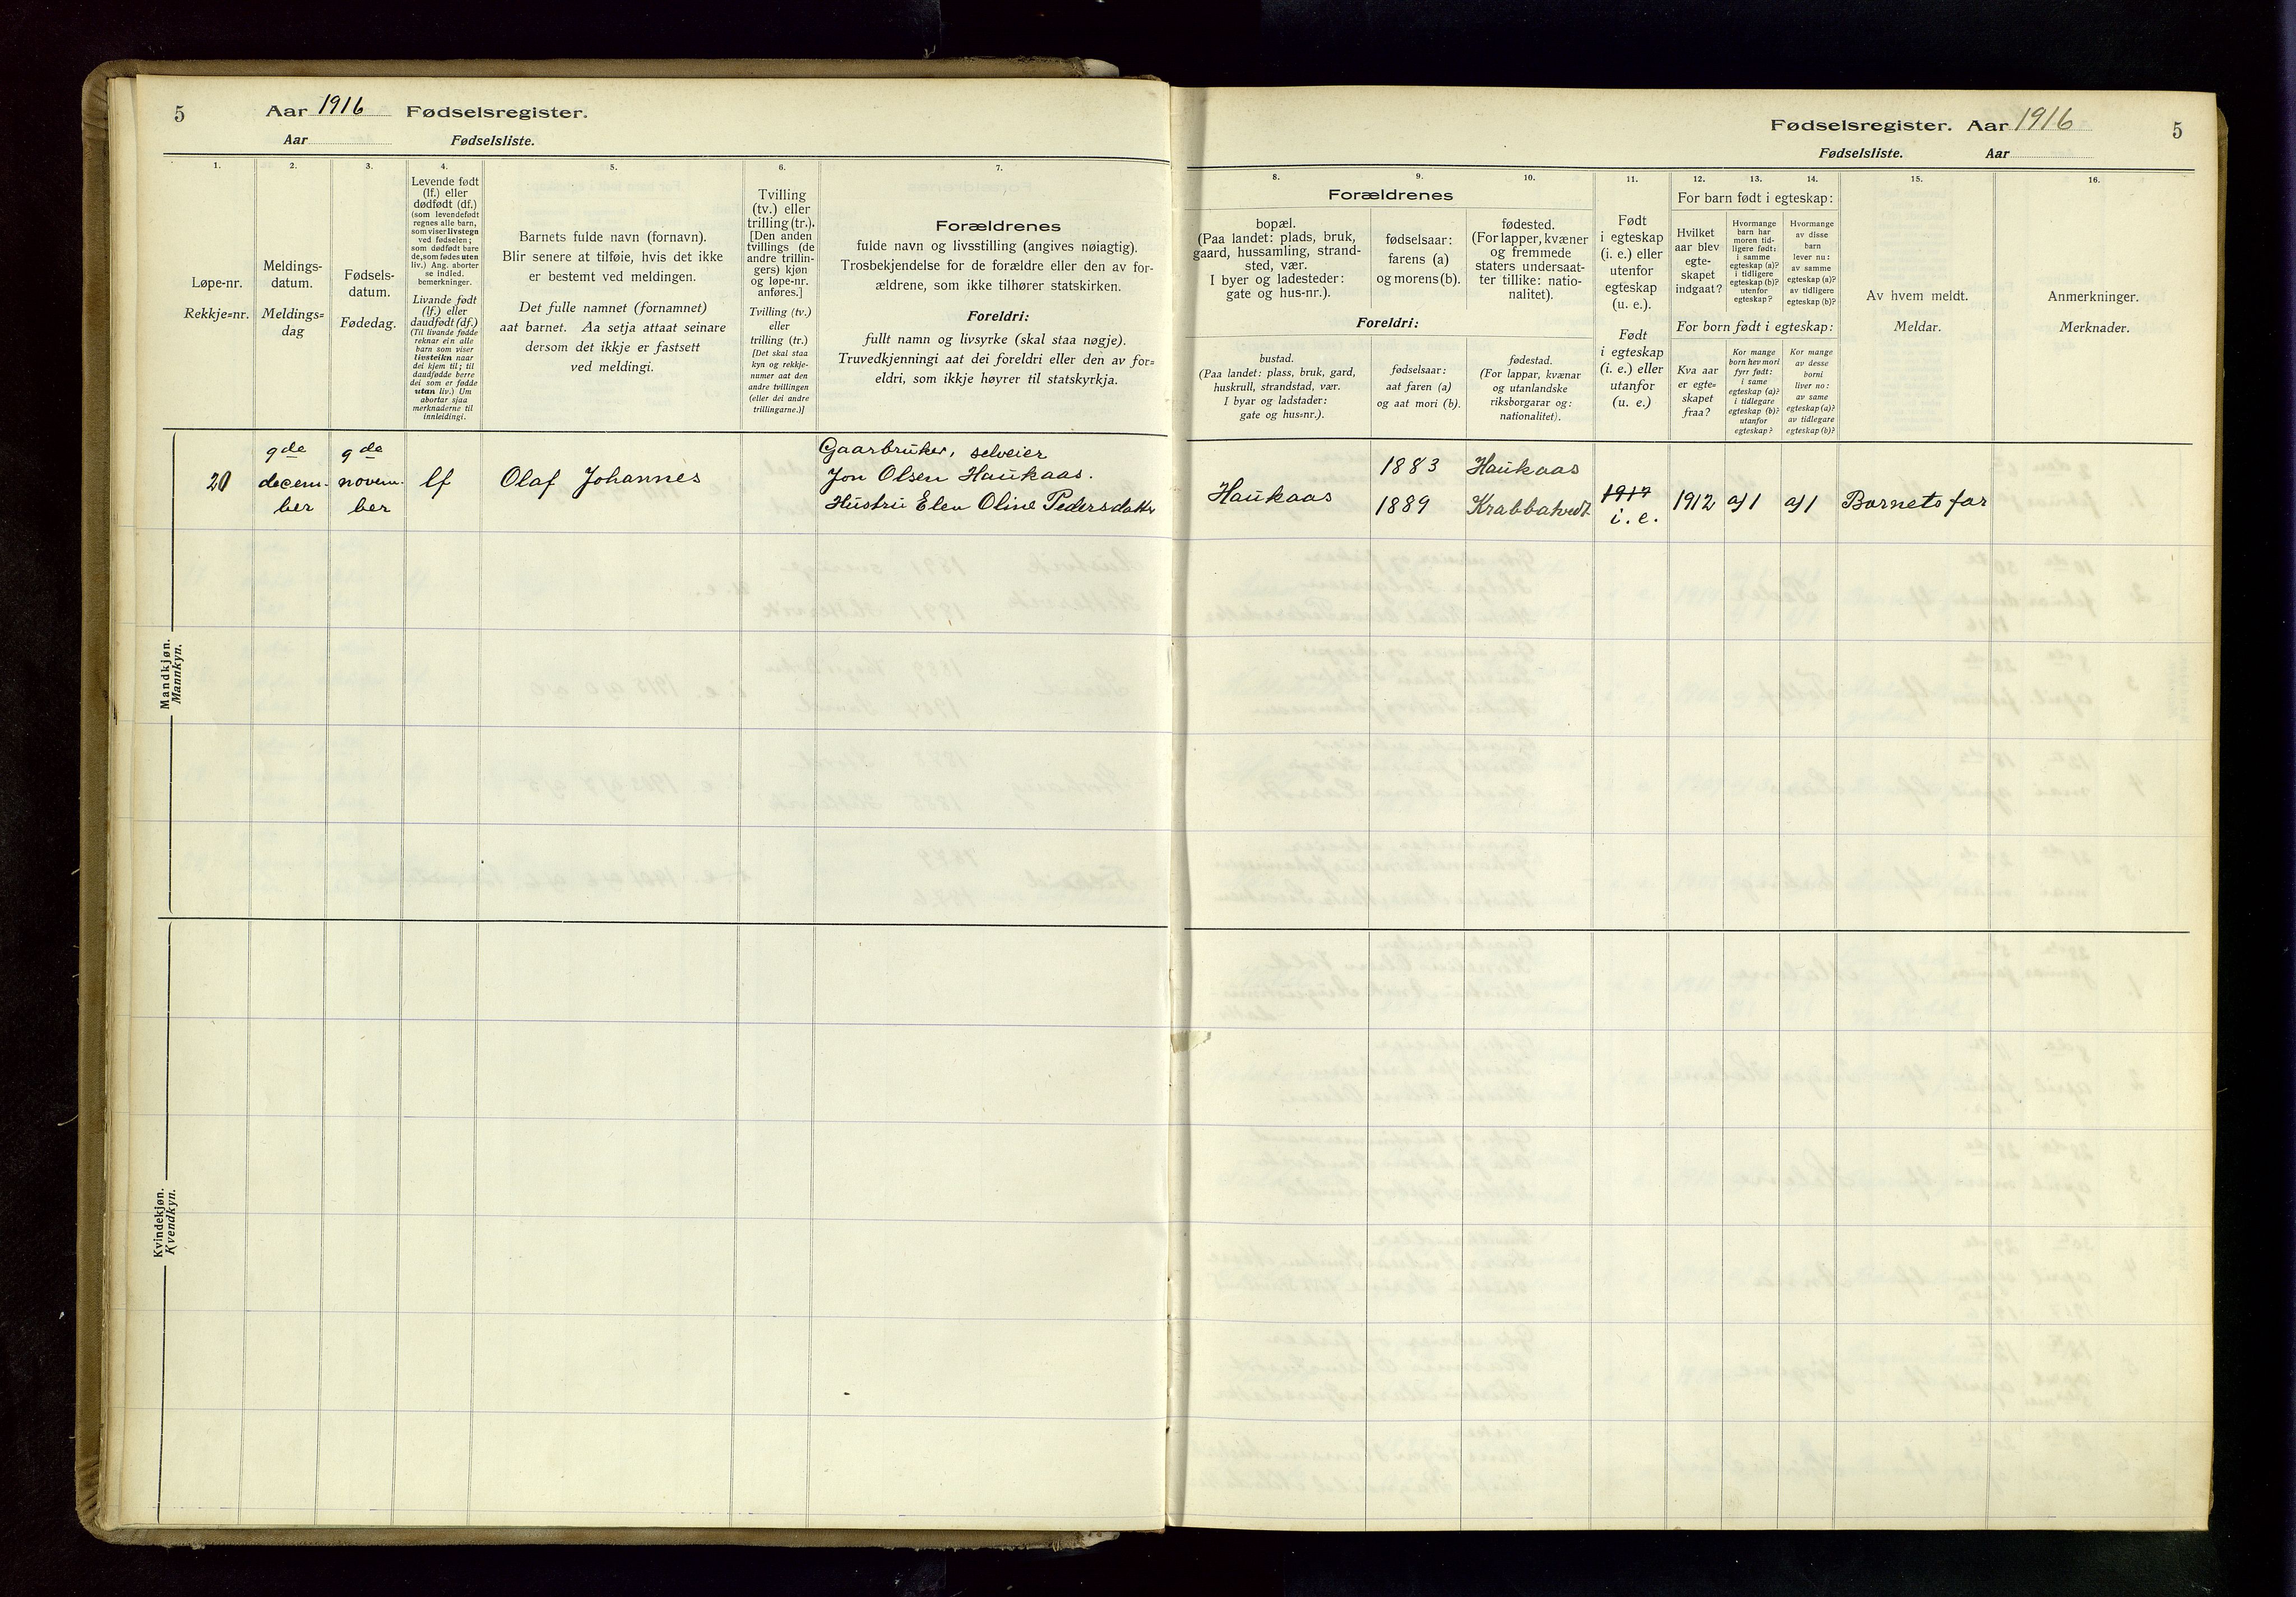 5
Aar 1916 Fødselsregister.
Aar Fødselsliste.
1.
2.
3.
4.
5.
6.
7.
Løpe-nr.
Rekkje=nr.
Meldings-
datum.
Meldings=
dag
Fødsels-
datum.
Fødedag.
Levende født
(lf.) eller
dødfødt (df.)
(som levendefødt
regnes alle barn,
som viser livstegn
ved fødselen;
som dødfødt bare
de, som fødes uten
liv.) Ang. aborter
se indled.
bemerkninger.
Livande født
(lf.) eller
daudfødt (df.)
(Til livande fødde
reknar ein alle
barn som viser
livsteikn naar
dei kjem til; til
daudfødde berre
dei som er fødde
utan liv.) Um
abortar sjaa
merknaderne til
innleidingi.
Barnets fulde navn (fornavn).
Blir senere at tilføie, hvis det ikke
er bestemt ved meldingen.
Det fulle namnet (fornamnet)
aat barnet. Aa setja attaat seinare
dersom det ikkje er fastsett
ved meldingi.
Tvilling
(tv.) eller
trilling (tr.).
[Den anden
tvillings (de
andre trillin-
gers) kjøn
og løpe-nr.
anføres.]
Tvilling (tv.)
eller
trilling (tr.)
[Det skal staa
kyn og rekkje-
numer aat den
andre tvillingen
(eller dei andre
trillingarne.)]
Forældrenes
fulde navn og livsstilling (angives nøiagtig).
Trosbekjendelse for de forældre eller den av for-
ældrene, som ikke tilhører statskirken.
Foreldri:
fullt namn og livsyrke (skal staa nøgje).
Truvedkjenningi aat dei foreldri eller den av for=
eldri, som ikkje høyrer til statskyrkja.
Mandkjøn.
Mannkyn.
20
9de
decem-
ber
9de
novem-
ber
lf
Olaf Johannes
Gaarbruker, selveier
Jon Olsen Haukaas.
Hustru Elen Oline Pedersdatter
Kvindekjøn.
Kvendkyn.
Fødselsregister. Aar 1916
5
Fødselsliste. Aar
8.
9.
10.
11.
12.
13.
14.
15.
16.
Forældrenes
bopæl.
(Paa landet: plads, bruk,
gaard, hussamling, strand-
sted, vær.
I byer og ladesteder:
gate og hus-nr.).
fødselsaar:
farens (a)
og morens (b).
fødested.
(For lapper, kvæner
og fremmede
staters undersaat-
ter tillike: natio-
nalitet).
Foreldri:
bustad.
(Paa landet: plass, bruk, gard,
huskrull, strandstad, vær.
I byar og ladstader:
gate og hus=nr.).
fødselsaar:
aat faren (a)
og aat mori (b).
fødestad.
(For lappar, kvænar
og utanlandske
riksborgarar og:
nationalitet).
Født
i egteskap
(i. e.) eller
utenfor
egteskap
(u. e.).
Født
i egteskap
(i. e.) eller
utanfor
(u. e.)
For barn født i egteskap:
Hvilket
aar blev
egte-
skapet
indgaat?
Hvormange
barn har
moren tid-
ligere født:
i samme
egteskap (a)?
i tidligere
egteskap (b)?
utenfor
egteskap?
Hvormange
av disse
barn
lever nu:
av samme
egteskap (a)?
av tidligere
egteskap (b)?
For born født i egteskap:
Kva aar
er egte=
skapet
fraa?
Kor mange
born hev mori
fyrr født:
i same
egteskap (a)?
i tidlegare
egteskap (b)?
utanfor
egteskap?
Kor mange
av desse
borni
liver no:
av same
egteskap (a)?
av tidlegare
egteskap (b)?
Av hvem meldt.
Meldar.
Anmerkninger.
Merknader.
Haukaas
1883
1889
Haukaas
1917
i. e.
1912
a/1
a/1
Barnets far